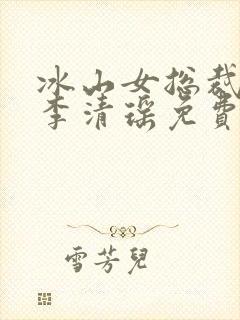 冰山女总裁
李清瑶免費
雪芳兒